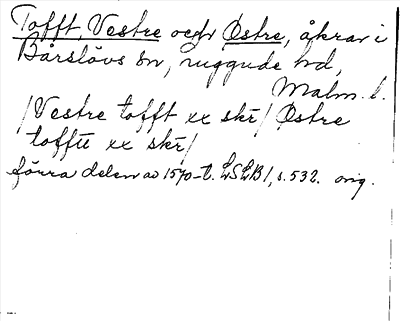 Tofft, Vestre och Østre, åkrar i
Bårslövs sn, ruggude hd,
Malm. l.
/Vestre tofft xx skr/ Østre
toffte xx skr/
förra delen av 1570-t. LSLB 1, s. 532. orig.